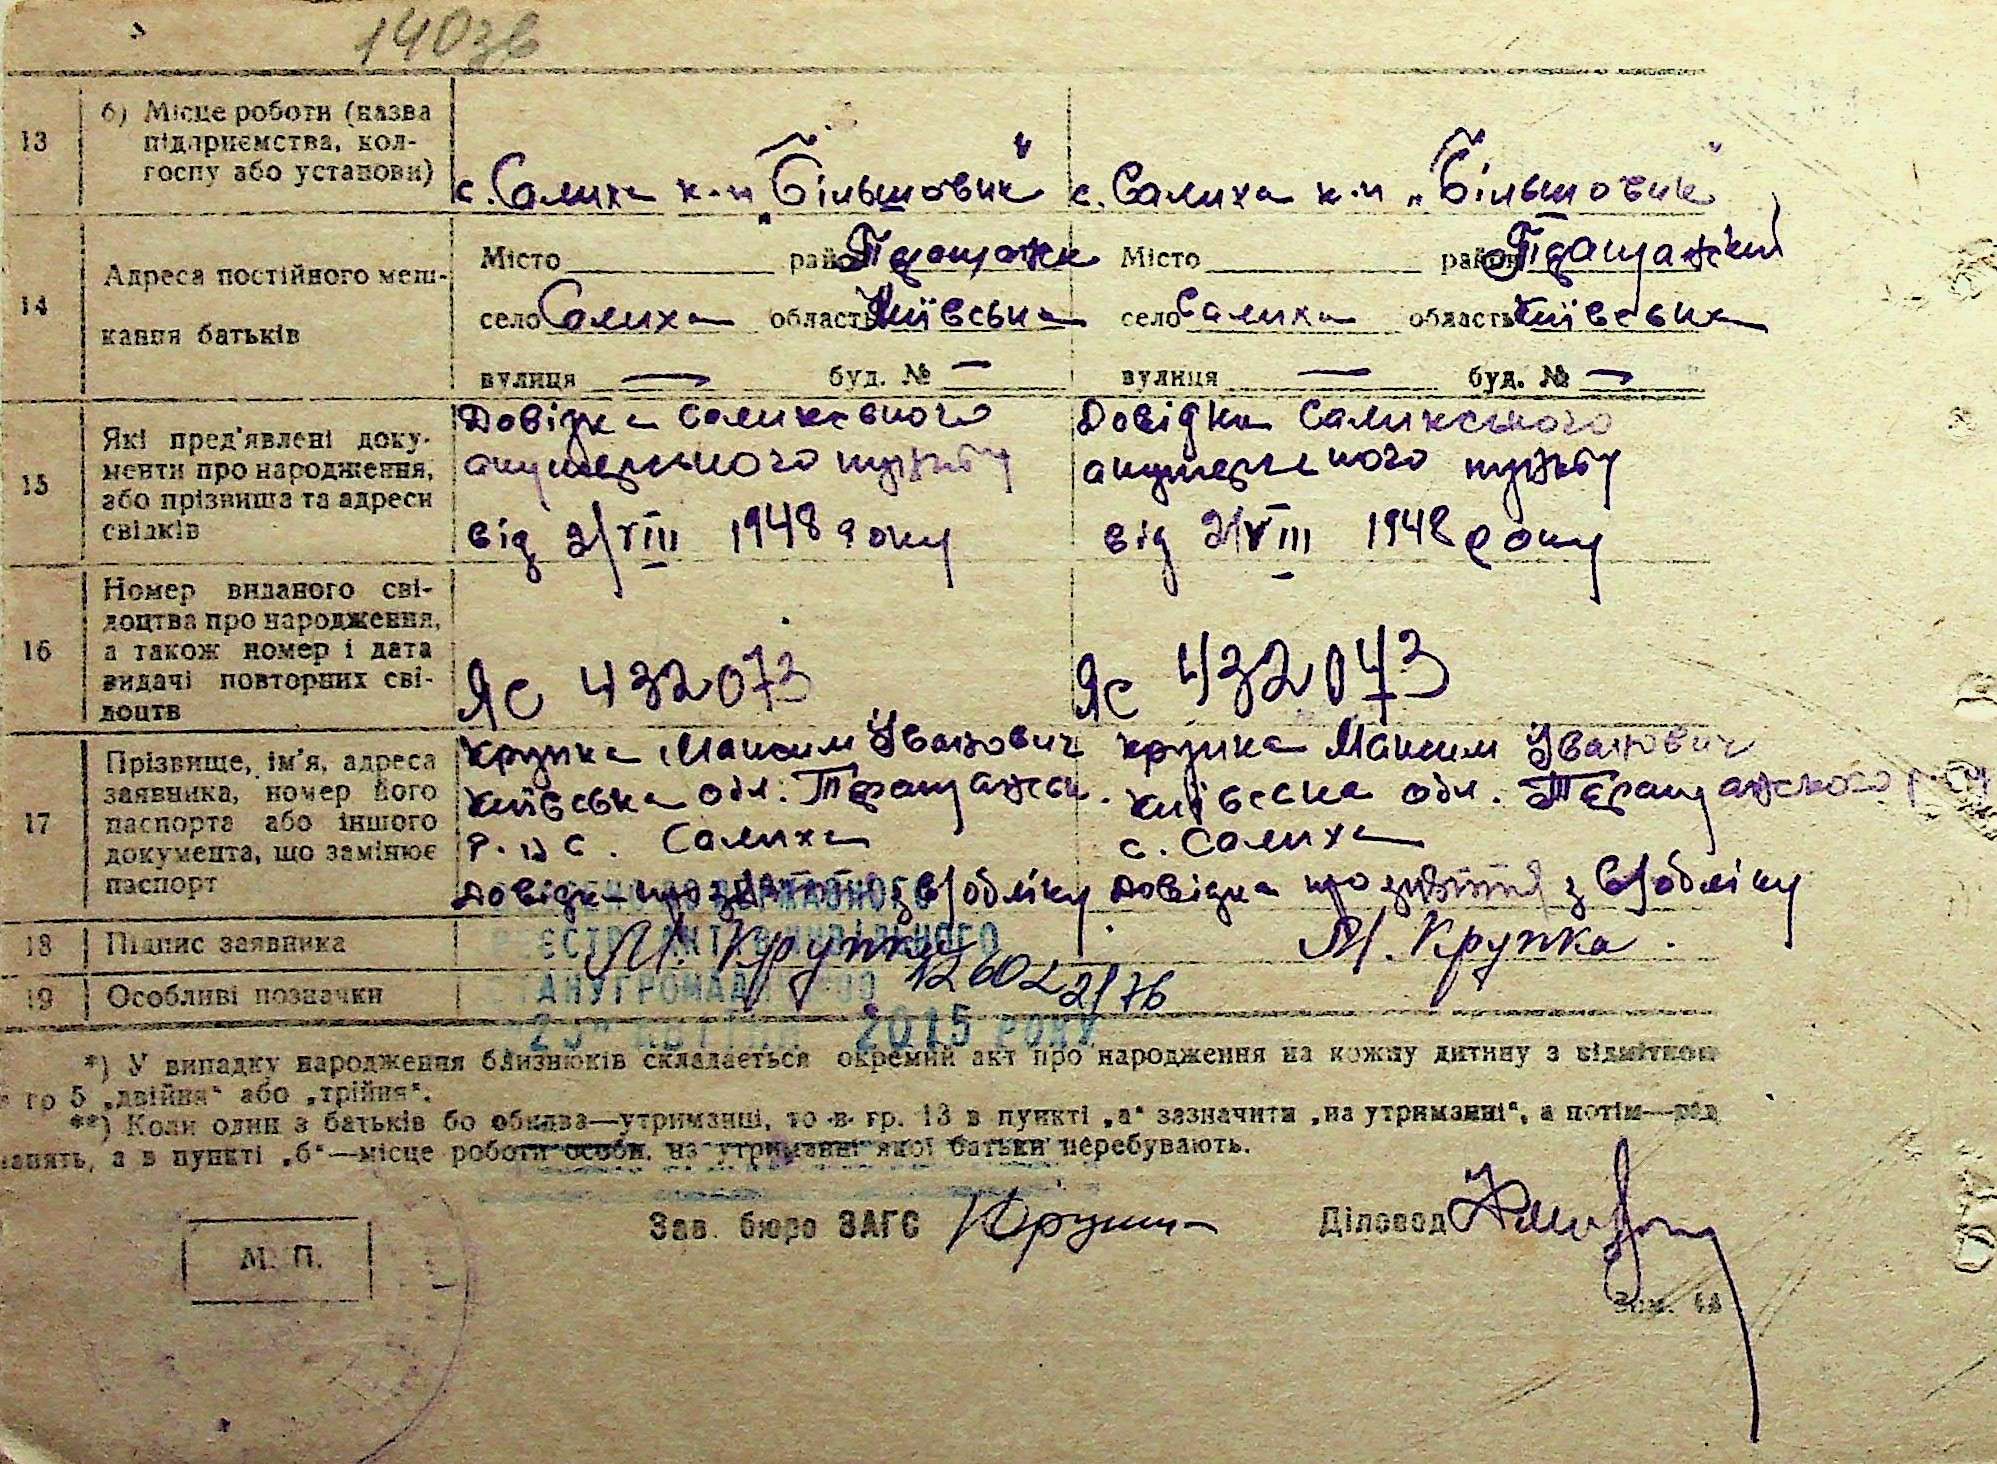 140зв
13
б) Місце роботи (назва
підприємства, кол-
госпу або установи)
с. Салиха к-п „Більшовик“
с. Салиха к-п „Більшовик“
14
Адреса постійного меш-
кання батьків
Місто район
село Салиха область Київська
вулиця — буд. № —
Місто район
село Салиха область Київська
вулиця — буд. № —
15
Які пред'явлені доку-
менти про народження,
або прізвища та адреси
свідків
Довідка Салихського
акушерського пункту
від 2/VIII 1948 року
Довідка Салихського
акушерського пункту
від 2/VIII 1948 року
16
Номер виданого сві-
доцтва про народження,
а також номер і дата
видачі повторних сві-
доцтв
ЯС 432073
ЯС 432073
17
Прізвище, ім'я, адреса
заявника, номер його
паспорта або іншого
документа, що замінює
паспорт
Крупка Максим Іванович
Київська обл. Таращанськ.
р-н с. Салиха
Довідка що зняття з в/обліку
Крупка Максим Іванович
Київська обл. Таращанського
с. Салиха
Довідка що зняття з в/обліку
18
Підпис заявника
М. Крупка
М. Крупка
19
Особливі позначки
ДЕРЖАВНОГО
РЕЄСТРУ АКТІВ ЦИВІЛЬНОГО
СТАНУ ГРОМАДЯН
2015 РОКУ
*) У випадку народження близнюків складається окремий акт про народження на кожну дитину з відміткою
в гр 5 „двійня“ або „трійня“.
**) Коли один з батьків бо обидва—утриманці, то в гр. 13 в пункті „а“ зазначити „на утриманні“, а потім—рід
занять, а в пункті „б“—місце роботи особи, на утриманні якої батьки перебувають.
М. П.
Зав. бюро ЗАГС
Діловод
Зам.